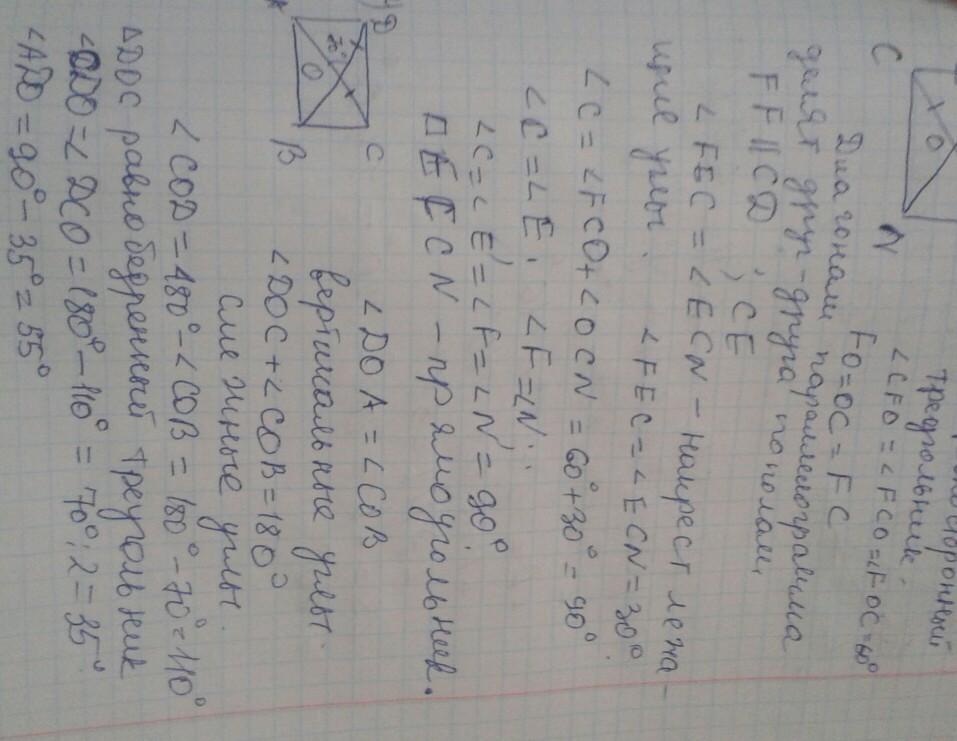 сторонный
треугольник.
∠CFO = ∠FCO = ∠FOC = 60°
C O N
FO = OC = FC
Диагонали параллелограмма
делят друг-друга пополам,
FF || CD, CE
∠FEC = ∠ECN - накрест лежа-
щие углы. ∠FEC = ∠ECN = 30°
∠C = ∠FCO + ∠OCN = 60° + 30° = 90°
∠C = ∠E, ∠F = ∠N.
∠C = ∠E = ∠F = ∠N = 90°
□ FECN - прямоугольник.
D C
70°
O
B
∠DOA = ∠COB
вертикальные углы.
∠DOC + ∠COB = 180°
смежные углы.
∠COD = 180° - ∠COB = 180° - 70° = 110°
ΔDOC равнобедренный треугольник
∠CDO = ∠DCO = 180° - 110° = 70° : 2 = 35°
∠ADO = 90° - 35° = 55°